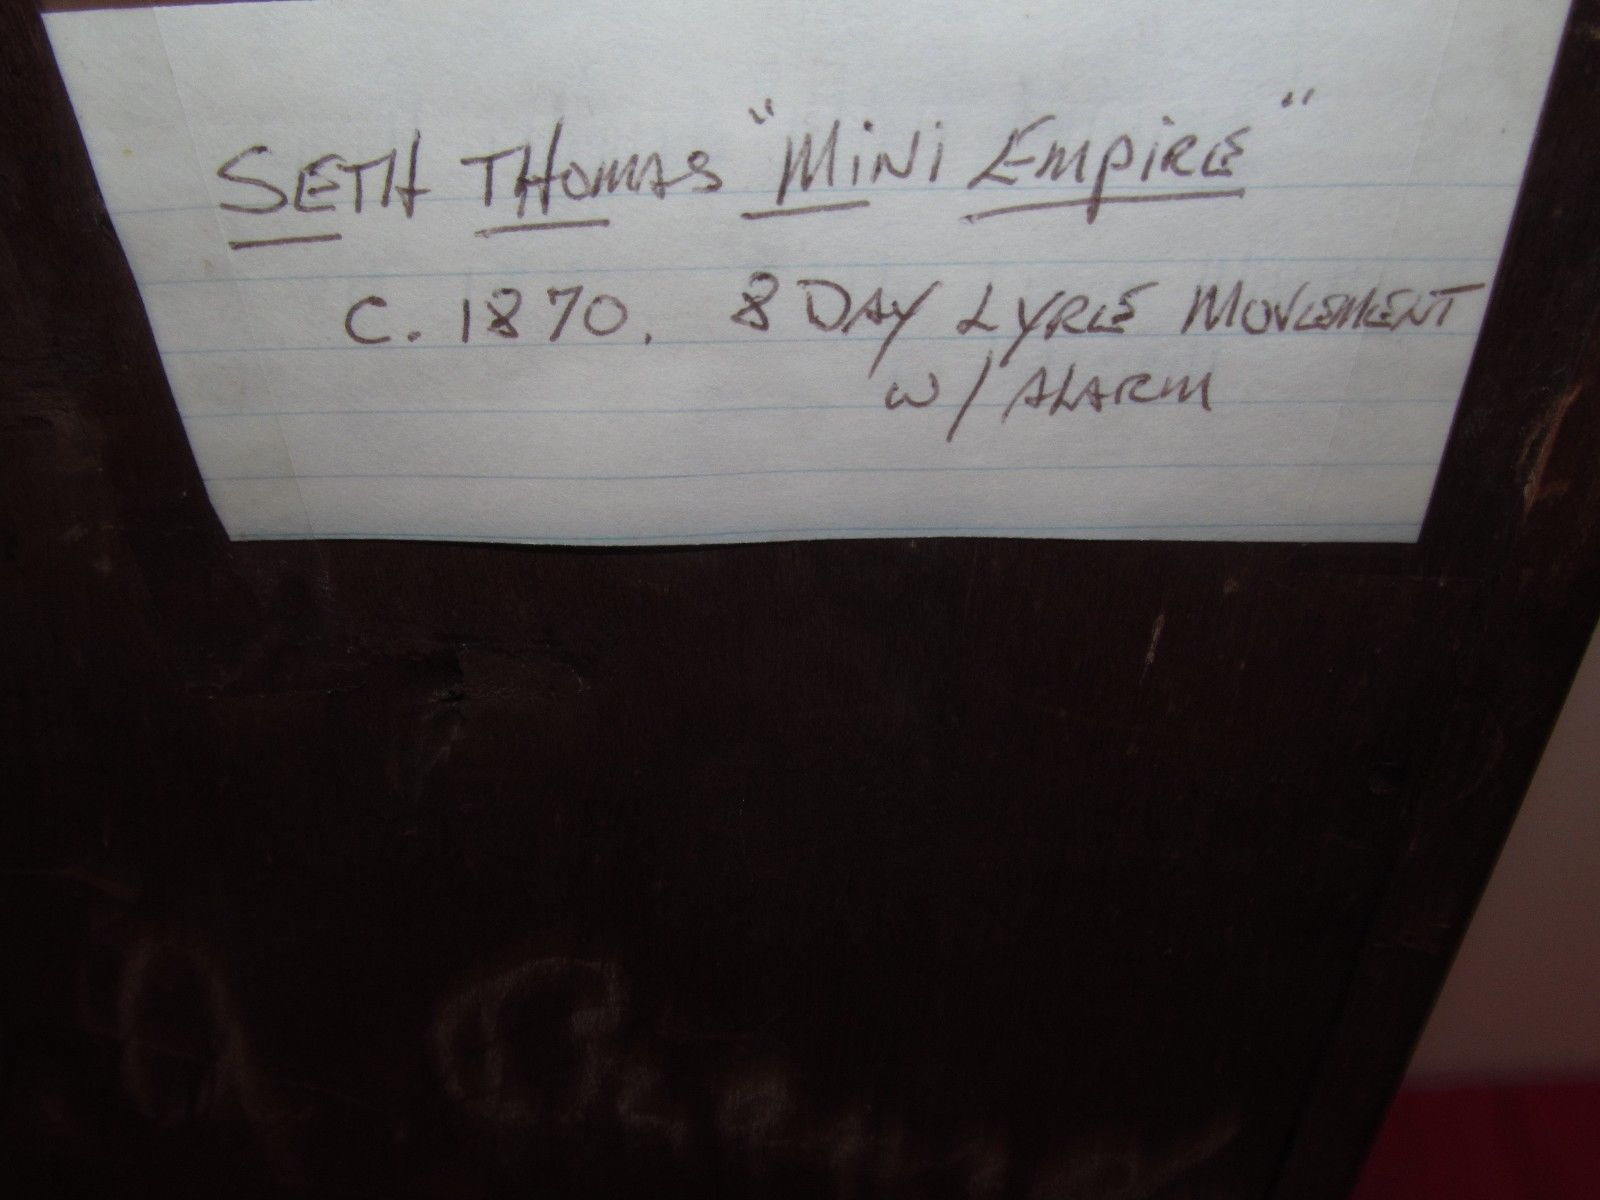 SETH THOMAS "MINI EMPIRE"
C. 1870. 8 DAY LYRE MOVEMENT
W/ ALARM